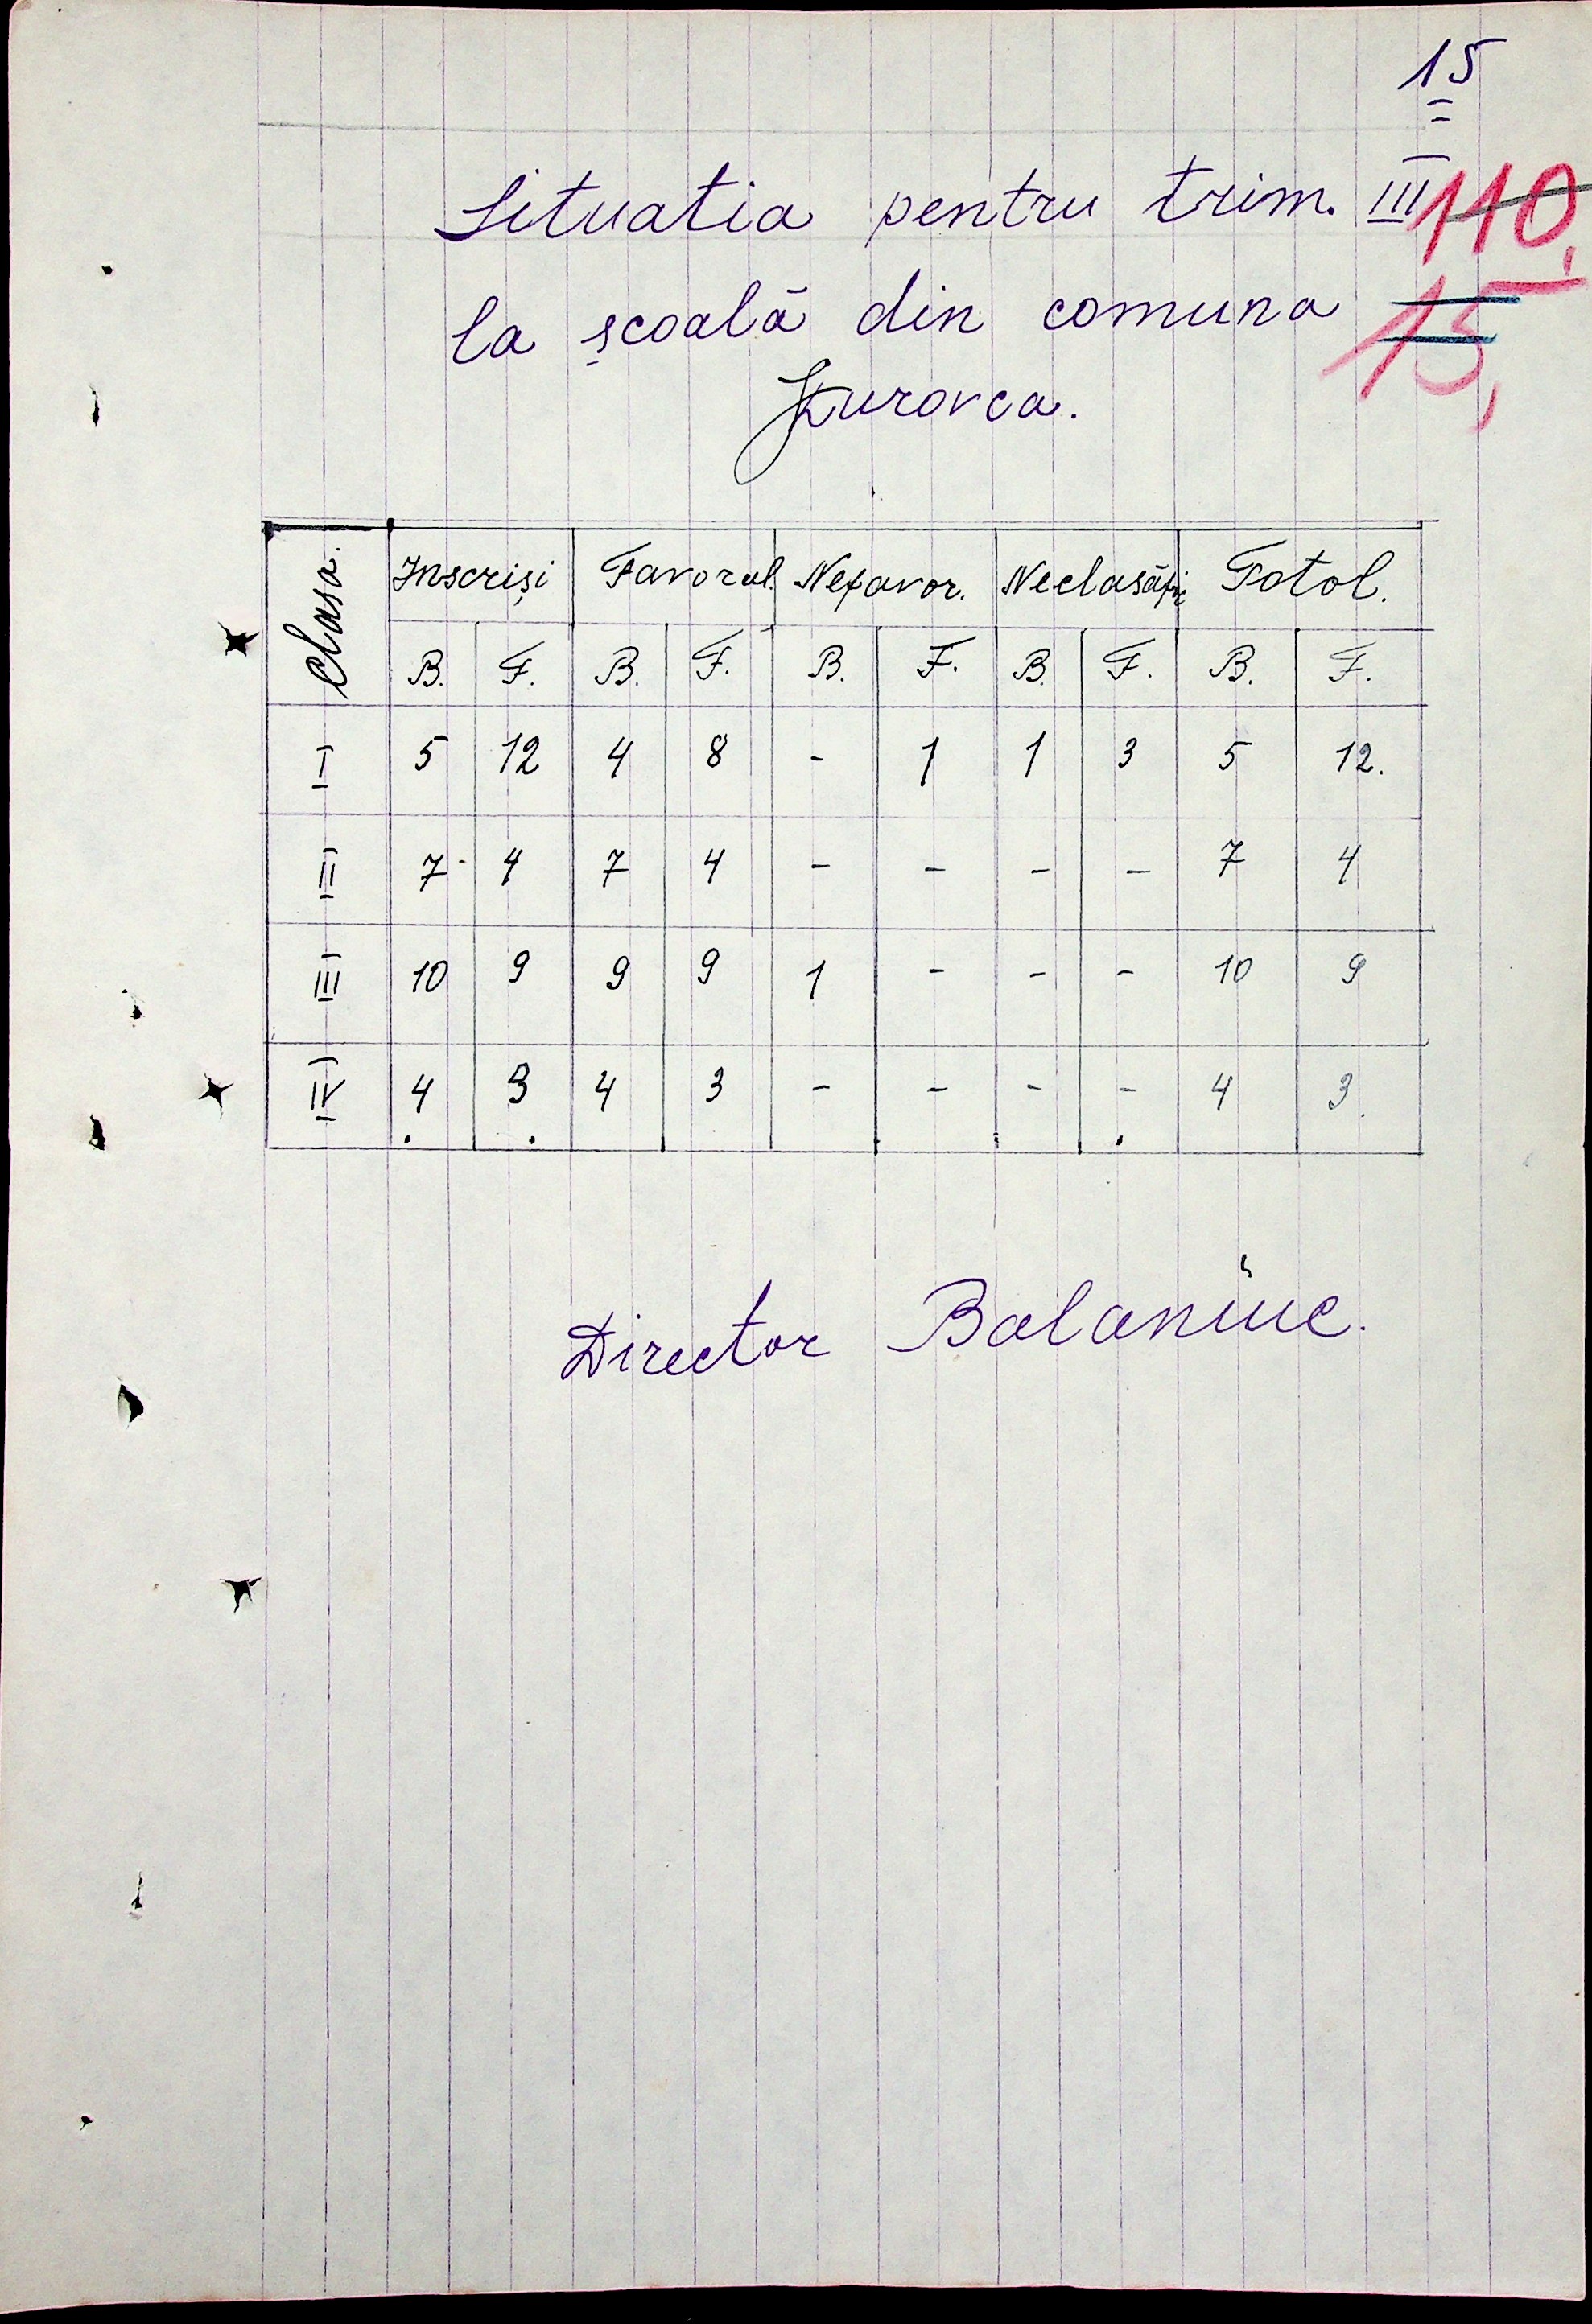 15
Situatia pentru trim. III
110,
la școală din comuna
15,
Jurovca.
Clasa. Inscriși Favorab. Nefavor. Neclasăfic Total.
B. F. B. F. B. F. B. F. B. F.
I 5 12 4 8 - 1 1 3 5 12.
II 7 4 7 4 - - - - 7 4
III 10 9 9 9 1 - - - 10 9
IV 4 3 4 3 - - - - 4 3.
Director Balaniuc.